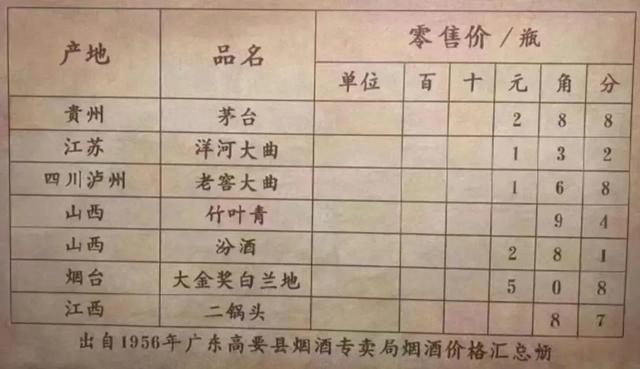 产地 品名 零售价/瓶
单位 百 十 元 角 分
貴州 茅台 2 8 8
江苏 洋河大曲 1 3 2
四川泸州 老窖大曲 1 6 8
山西 竹叶青 9 4
山西 汾酒 2 8 1
烟台 大金奖白兰地 5 0 8
江西 二锅头 8 7
出自1956年广东高要县烟酒专卖局烟酒价格汇总